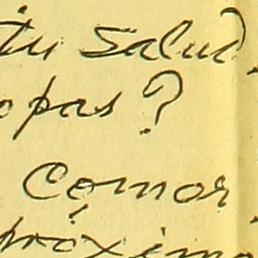 tu salud
opas?
Comor
próximo